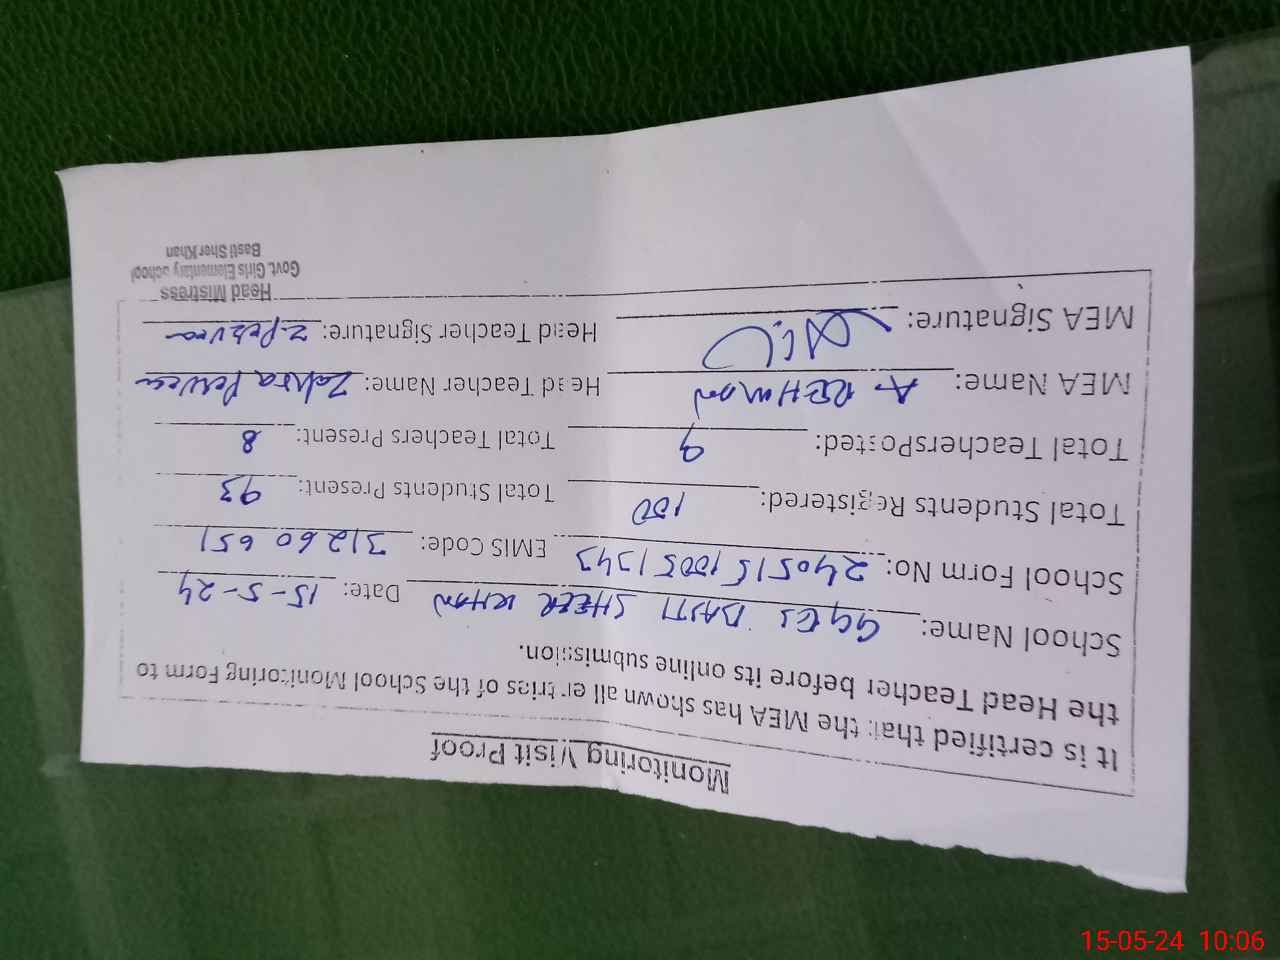 Monitoring Visit Proof
It is certified that the MEA has shown all entries of the School Monitoring Form to
the Head Teacher before its online submission.
School Name: GGES BASTI SHEER KHAN Date: 15-5-24
School Form No: 24051510051343 EMIS Code: 31260651
Total Students Registered: 100 Total Students Present: 93
Total TeachersPosted: 9 Total Teachers Present: 8
MEA Name: A-REHMAN Head Teacher Name: Zahra Perveen
MEA Signature: Head Teacher Signature: Z-Perveen
Head Mistress
Govt. Girls Elementary School
Basti Sher Khan
15-05-24 10:06